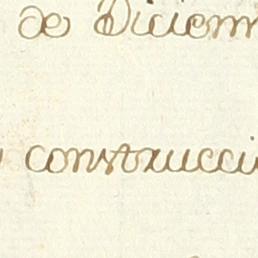 de Diciem
construcci